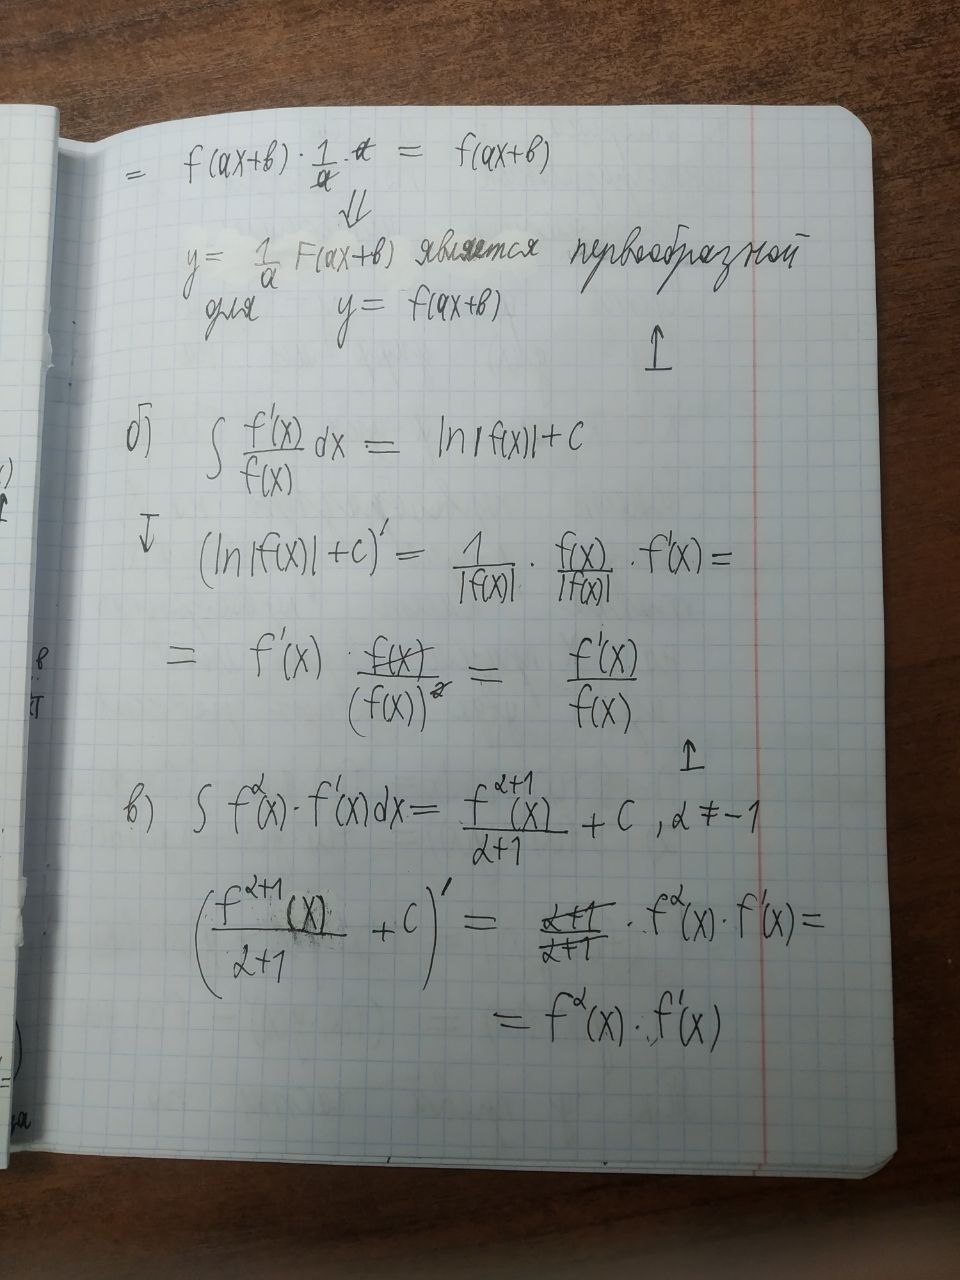 = f(ax+b) · 1/a · a = f(ax+b)
⇓
y = 1/a F(ax+b) является первообразной
для y = f(ax+b)
↥
б) ∫ f'(x)/f(x) dx = ln|f(x)| + C
↧ (ln|f(x)| + C)' = 1/|f(x)| · f(x)/|f(x)| · f'(x) =
= f'(x) · f(x)/(f(x))² = f'(x)/f(x)
↥
в) ∫ f^α(x) · f'(x) dx = f^(α+1)(x)/(α+1) + C, α ≠ -1
(f^(α+1)(x)/(α+1) + C)' = (α+1)/(α+1) · f^α(x) · f'(x) =
= f^α(x) · f'(x)